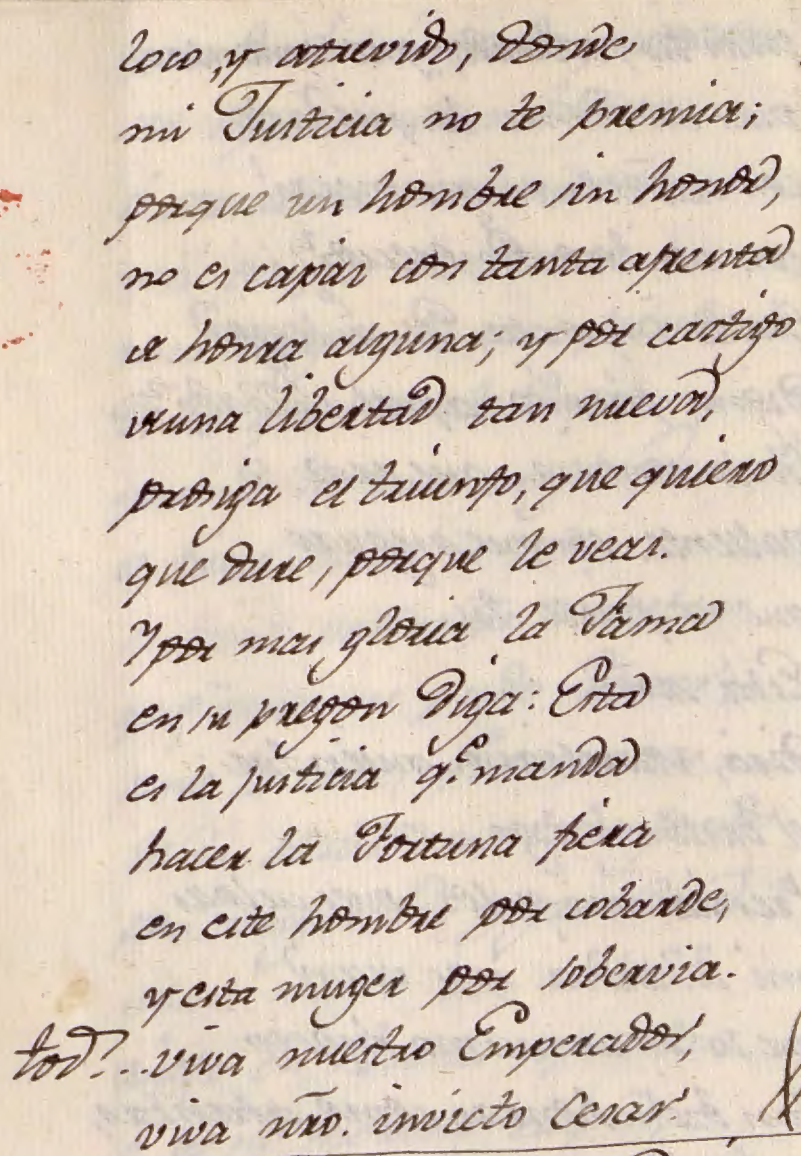 loco, y atrevido, donde
mi Justicia no te premia;
porque un hombre sin honor,
no es capaz con tanta afrenta
de honra alguna; y por castigo
de una libertad tan nueva,
prosiga el triunfo, que quiero
que dure, porque le veas.
Y por mas gloria la Fama
en su pregon diga: Esta
es la justicia q.e manda
hacer la Fortuna fiera
en este hombre por cobarde,
y esta muger por sobervia.
tod.s.. viva nuestro Emperador,
viva nro. invicto Cesar.